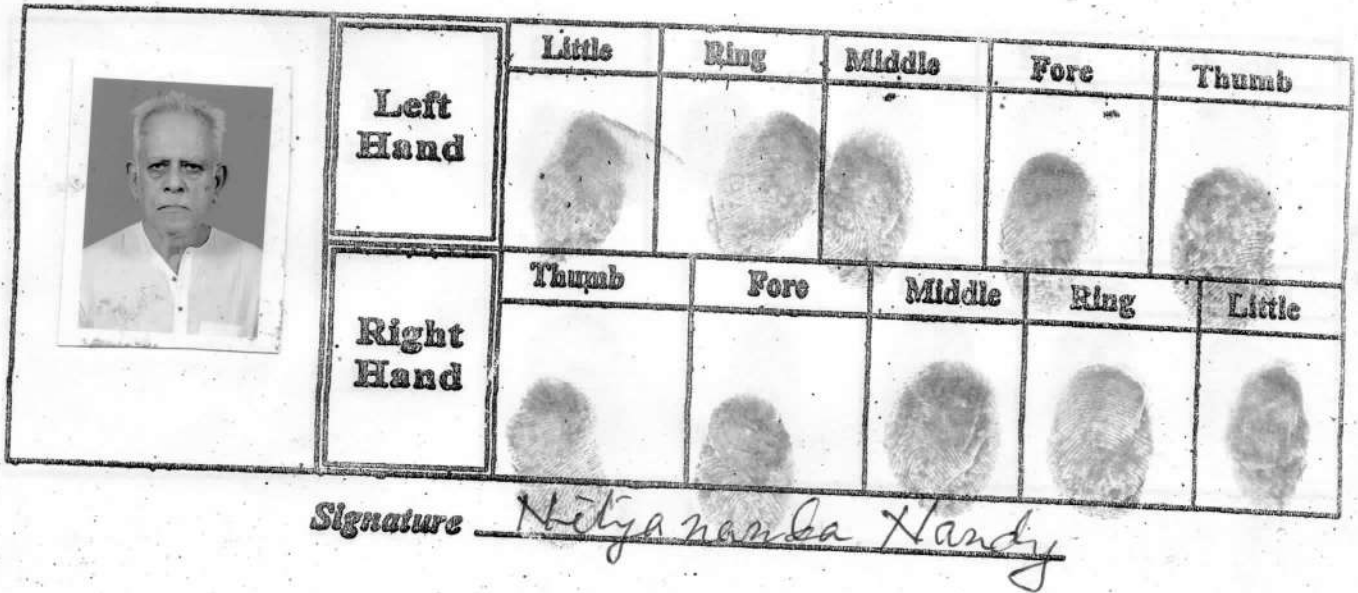 Left Hand
Little Ring Middle Fore Thumb
Right Hand
Thumb Fore Middle Ring Little
Signature Nityananda Nandy